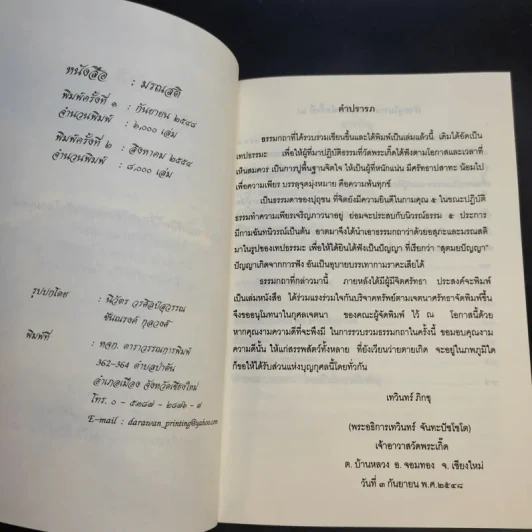 หนังสือ : มรณสติ
พิมพ์ครั้งที่ ๑ : กันยายน ๒๕๔๘
จำนวนพิมพ์ : ๒,๐๐๐ เล่ม
พิมพ์ครั้งที่ ๒ : สิงหาคม ๒๕๕๔
จำนวนพิมพ์ : ๘,๐๐๐ เล่ม
รูปปกโดย : นิวัตร วรศิลป์สุวรรณ
ชัยณรงค์ กุลวงค์
พิมพ์ที่ : หจก. ดาราวรรณการพิมพ์
362-364 ตำบลป่าตัน
อำเภอเมือง จังหวัดเชียงใหม่
โทร. ๐ - ๕๓๘๗ - ๒๘๗๖ - ๗
E-mail : darawan_printing@yahoo.com
คำปรารภ
ธรรมกถาที่ได้รวบรวมเขียนขึ้นและได้พิมพ์เป็นเล่มแล้วนี้ เดิมได้อัดเป็น
เทปธรรมะ เพื่อให้ผู้ที่มาปฏิบัติธรรมที่วัดพระเกิ๊ดได้ฟังตามโอกาสและเวลาที่
เห็นสมควร เป็นการปูพื้นฐานจิตใจ ให้เป็นผู้ที่หนักแน่น มีศรัทธาปสาทะ น้อมไป
เพื่อความเพียร บรรลุจุดมุ่งหมาย คือความพ้นทุกข์
เป็นธรรมดาของปุถุชน ที่จิตยังมีความยินดีในกามคุณ ๕ ในขณะปฏิบัติ
ธรรมทำความเพียรเจริญภาวนาอยู่ ย่อมจะประสบกับนิวรณ์ธรรม ๕ ประการ
มีกามฉันทนิวรณ์เป็นต้น อาตมาจึงได้นำเอาธรรมกถาว่าด้วยอสุภะและมรณสติ
มาในรูปของเทปธรรมะ เพื่อให้ได้ยินได้ฟังเป็นปัญญา ที่เรียกว่า "สุตมยปัญญา"
ปัญญาเกิดจากการฟัง อันเป็นอุบายบรรเทากามราคะเสียได้
ธรรมกถาที่กล่าวมานี้ ภายหลังได้มีผู้มีจิตศรัทธา ประสงค์จะพิมพ์
เป็นเล่มหนังสือ ได้ร่วมแรงร่วมใจกันบริจาคทรัพย์ตามเจตนาศรัทธาจัดพิมพ์ขึ้น
จึงขออนุโมทนาในกุศลเจตนา ของคณะผู้จัดพิมพ์ ไว้ ณ โอกาสนี้ด้วย
หากคุณงามความดีที่จะพึงมี ในการรวบรวมธรรมกถาในครั้งนี้ ขอมอบคุณงาม
ความดีนั้น ให้แก่สรรพสัตว์ทั้งหลาย ที่ยังเวียนว่ายตายเกิด จะอยู่ในภพภูมิใด
ก็ขอให้ได้รับส่วนแห่งบุญกุศลนี้โดยทั่วกัน
เทวินทร์ ภิกขุ
(พระอธิการเทวินทร์ จันทะปัชโชโต)
เจ้าอาวาสวัดพระเกิ๊ด
ต. บ้านหลวง อ. จอมทอง จ. เชียงใหม่
วันที่ ๓ กันยายน พ.ศ.๒๕๔๘